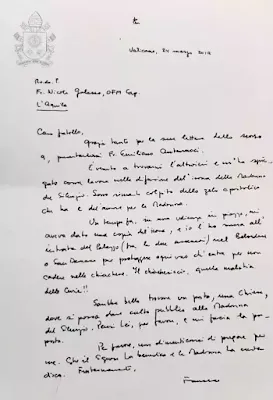 Vaticano, 24 marzo 2019
Rev.do P.
Fr. Nicola Galasso, OFM Cap.
L'Aquila
Caro fratello,
Grazie tante per la sua lettera dello scorso
9, Fr. Emiliano Antenucci.
È venuto a trovarmi l'altro ieri e m'ha spie-
gato come lavora nella diffusione dell'icona della Madonna
del Silenzio. Sono rimasto colpito dello zelo apostolico
che ha e dell'amore per la Madonna.
Un tempo fa, in una udienza in piazza, mi
aveva dato una copia dell'icona, e io l'ho messa all'
entrata del Palazzo (tra le due ascensori) nel
San Damaso per proteggere ogni uno ch'entra per non
cadere nelle chiacchiere. Il chiacchiericcio, quella malattia
della Curia!!
Sarebbe bello trovare un posto, una Chiesa,
dove si possa dare culto pubblico alla Madonna
del Silenzio. Pensi Lei, per favore, e mi faccia la pro-
posta.
Per favore, non dimentichiamo di pregare per
me. Che il Signore La benedica e la Madonna La custo-
disca. Fraternamente,
Francesco